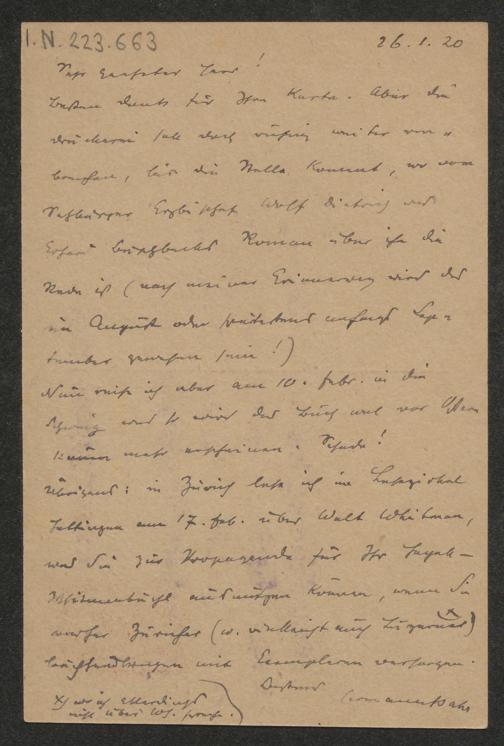 I.N. 223.663
26.1.20
Sehr geehrter Herr!
besten Dank für Ihre Karte. Aber die
Druckerei soll doch ruhig weiter um-
brechen, bis die Stelle kommt, wo vom
Salzburger Erzbischof Wolf Dietrich und
Roman über ihn die
Rede ist (nach meiner Erinnerung wird das
im August oder spätestens anfangs Sep-
tember gewesen sein!)
Nun reise ich aber am 10. Febr. in die
Schweiz und so wird das Buch wol vor Ostern
kaum mehr erscheinen. Schade!
Übrigens: in Zürich lese ich im Lesezirkel
Hottingen am 17. Feb. über Walt Whitman,
was Sie zur Propaganda für Ihr
ausnützen können, wenn Sie
Züricher (u. vielleicht auch Luzerner x)
Buchhandlungen mit Exemplaren versorgen.
Bestens
Hermann Bahr
x) wo ich allerdings
nicht über Wh. spreche.